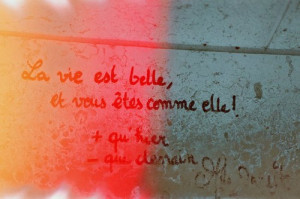 La vie est belle,
et vous êtes comme elle!
+ qu'hier
- que demain